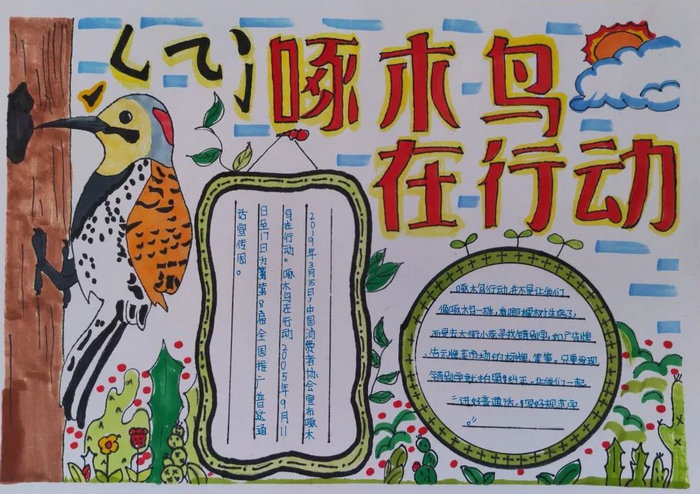 啄木鸟
在行动
2019年3月15日,中国消费者协会宣布啄木
鸟在行动。啄木鸟在行动 2005年9月11
日至17日为第8届全国推广普通
话宣传周。
啄木鸟行动,并不是让我们
像啄木鸟一样,看哪棵树生病了,
而是去大街小巷寻找错别字,如广告牌
告示牌,活动的标语,等等,只要发现
错别字就拍照纠正,让我们一起
“讲好普通话,写好规范字
。”